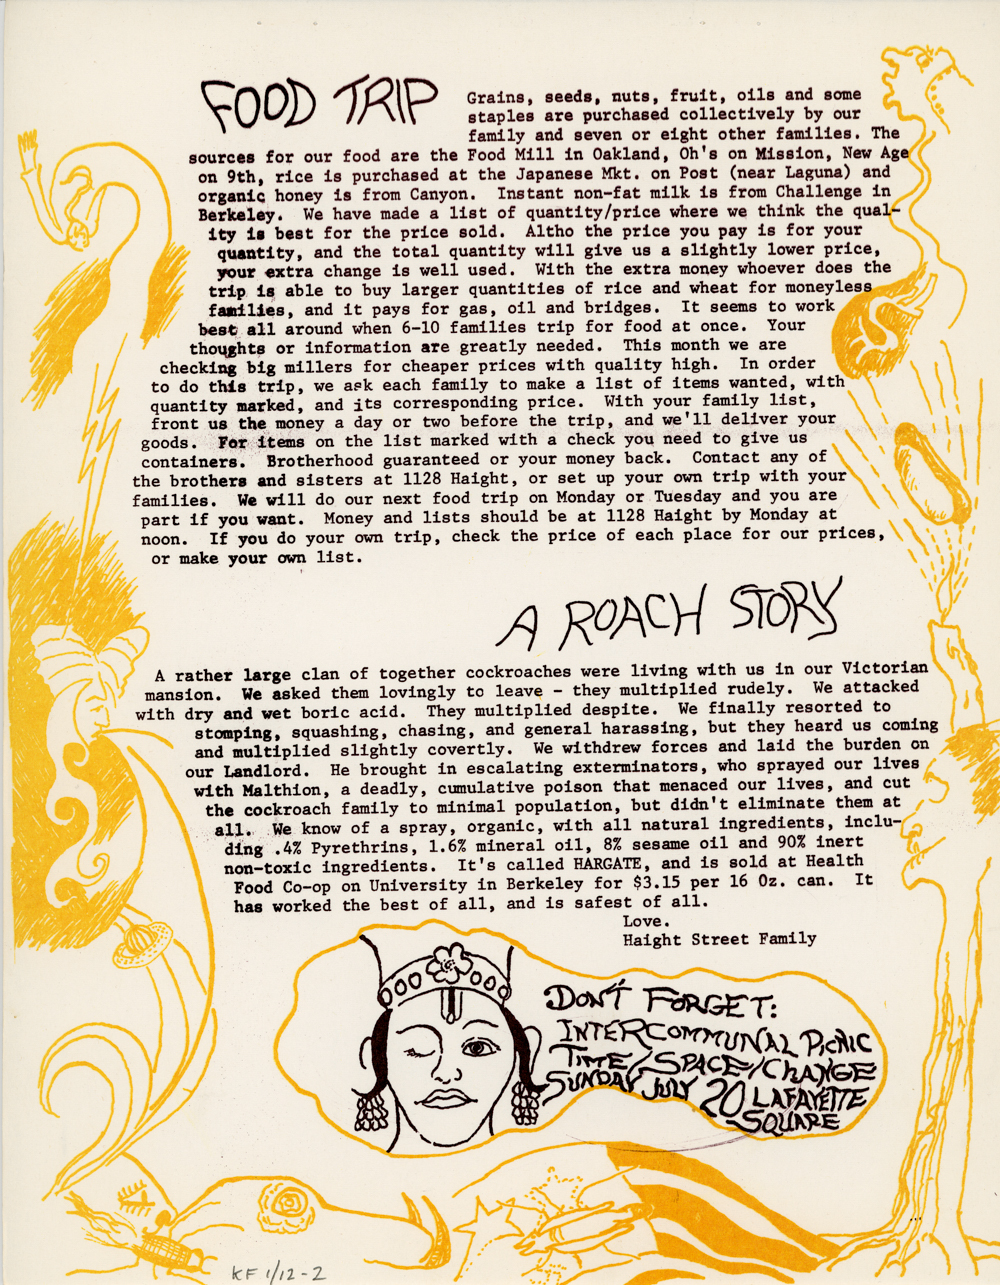 FOOD TRIP
Grains, seeds, nuts, fruit, oils and some
staples are purchased collectively by our
family and seven or eight other families. The
sources for our food are the Food Mill in Oakland, Oh's on Mission, New Age
on 9th, rice is purchased at the Japanese Mkt. on Post (near Laguna) and
organic honey is from Canyon. Instant non-fat milk is from Challenge in
Berkeley. We have made a list of quantity/price where we think the qual-
ity is best for the price sold. Altho the price you pay is for your
quantity, and the total quantity will give us a slightly lower price,
your extra change is well used. With the extra money whoever does the
trip is able to buy larger quantities of rice and wheat for moneyless
families, and it pays for gas, oil and bridges. It seems to work
best all around when 6-10 families trip for food at once. Your
thoughts or information are greatly needed. This month we are
checking big millers for cheaper prices with quality high. In order
to do this trip, we ask each family to make a list of items wanted, with
quantity marked, and its corresponding price. With your family list,
front us the money a day or two before the trip, and we'll deliver your
goods. For items on the list marked with a check you need to give us
containers. Brotherhood guaranteed or your money back. Contact any of
the brothers and sisters at 1128 Haight, or set up your own trip with your
families. We will do our next food trip on Monday or Tuesday and you are
part if you want. Money and lists should be at 1128 Haight by Monday at
noon. If you do your own trip, check the price of each place for our prices,
or make your own list.
A ROACH STORY
A rather large clan of together cockroaches were living with us in our Victorian
mansion. We asked them lovingly to leave - they multiplied rudely. We attacked
with dry and wet boric acid. They multiplied despite. We finally resorted to
stomping, squashing, chasing, and general harassing, but they heard us coming
and multiplied slightly covertly. We withdrew forces and laid the burden on
our Landlord. He brought in escalating exterminators, who sprayed our lives
with Malthion, a deadly, cumulative poison that menaced our lives, and cut
the cockroach family to minimal population, but didn't eliminate them at
all. We know of a spray, organic, with all natural ingredients, inclu-
ding .4% Pyrethrins, 1.6% mineral oil, 8% sesame oil and 90% inert
non-toxic ingredients. It's called HARGATE, and is sold at Health
Food Co-op on University in Berkeley for $3.15 per 16 Oz. can. It
has worked the best of all, and is safest of all.
Love.
Haight Street Family
DON'T FORGET:
INTERCOMMUNAL PICNIC
TIME/SPACE/CHANGE
SUNDAY JULY 20 LAFAYETTE
SQUARE
KF 1/12-2